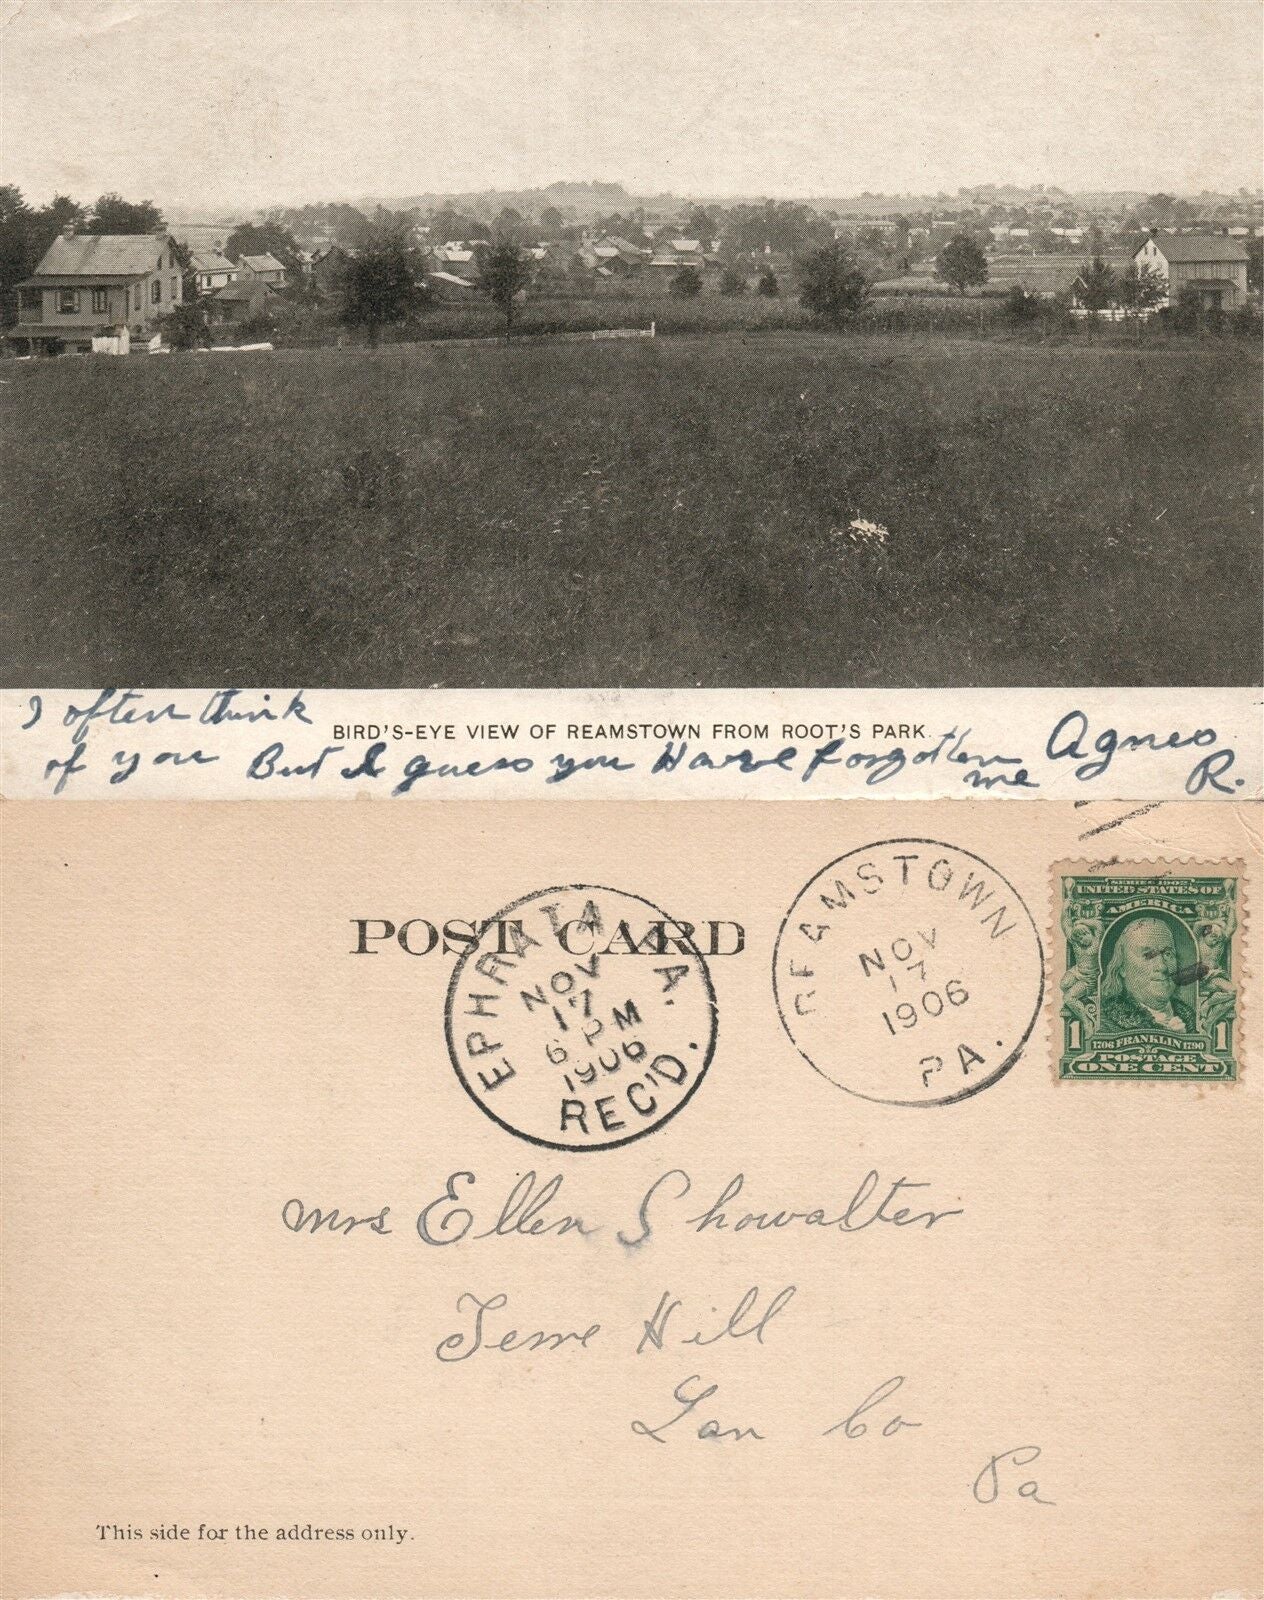 I often think
BIRD'S-EYE VIEW OF REAMSTOWN FROM ROOT'S PARK.
of you But I guess you Have forgotten me Agnes R.
POST CARD
EPHRATA PA.
NOV
17
6 PM
1906
REC'D.
REAMSTOWN
NOV
17
1906
PA.
SERIES 1902
UNITED STATES OF
AMERICA
1 1
1706 FRANKLIN 1790
POSTAGE
ONE CENT
Mrs Ellen Showalter
Terre Hill
Lan Co
Pa
This side for the address only.